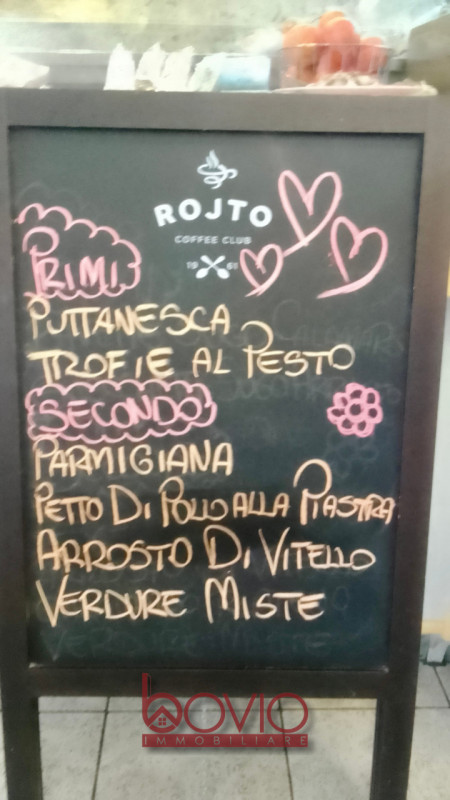 ROJTO
COFFEE CLUB
19 61
PRIMI
PUTTANESCA
TROFIE AL PESTO
SECONDO
PARMIGIANA
PETTO DI POLLO ALLA PIASTRA
ARROSTO DI VITELLO
VERDURE MISTE
bovio
IMMOBILIARE